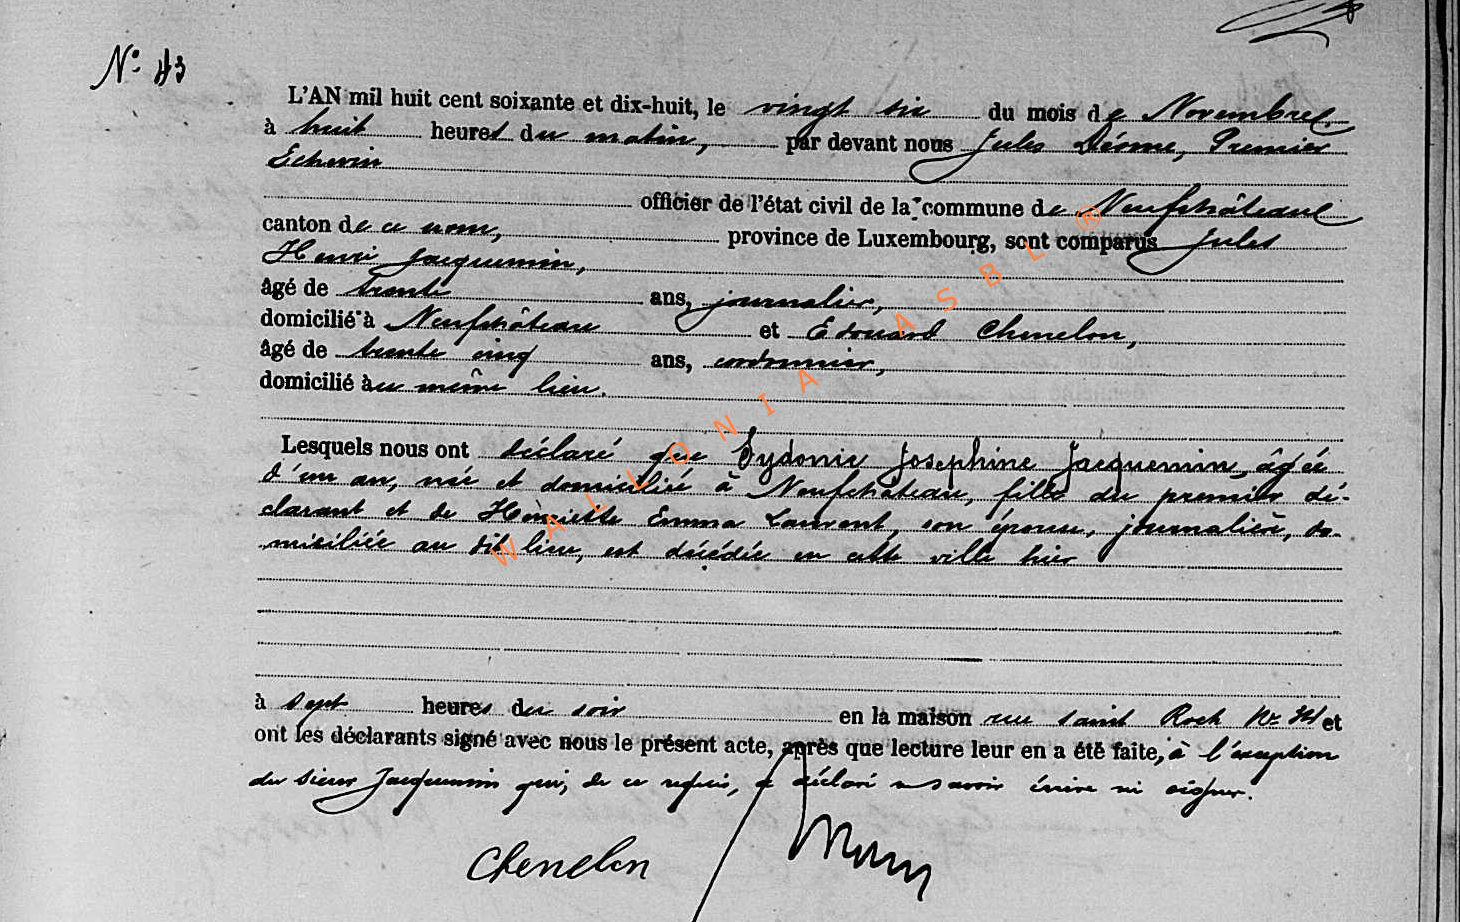 N° 43
L'AN mil huit cent soixante et dix-huit, le vingt six du mois de Novembre
à huit heures du matin, par devant nous Jules Déome, Premier
Echevin
officier de l'état civil de la commune de Neufchâteau
canton de ce nom, province de Luxembourg, sont comparus Jules
Henri Jacquemin,
âgé de trente ans, journalier,
domicilié à Neufchâteau et Edouard Chenelon,
âgé de trente cinq ans, cordonnier,
domicilié au même lieu.
Lesquels nous ont déclaré que Sydonie Josephine Jacquemin, âgée
d'un an, née et domiciliée à Neufchâteau, fille du premier dé-
clarant et de Henriette Emma Laurent, son épouse, journalière, do-
miciliée au dit lieu, est décédée en cette ville hier
à sept heures du soir en la maison rue saint Roch N° et
ont les déclarants signé avec nous le présent acte, après que lecture leur en a été faite, à l'exception
du sieur Jacquemin qui, de ce requis, a déclaré ne savoir écrire ni signer.
Chenelon
WALLONIA ASBL ®